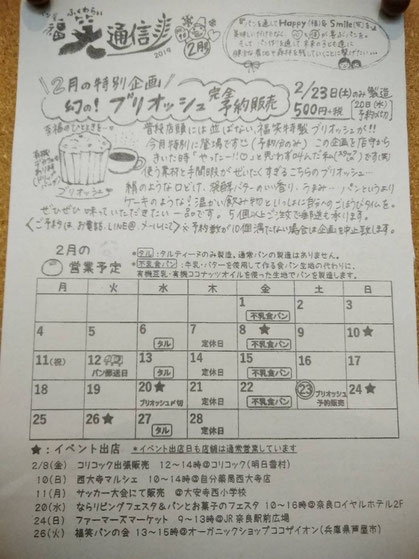 福笑 通信 2019 2月号
食を通じて Happy（福）& Smile（笑）を♪
2月の特別企画
幻の！ブリオッシュ 完全予約販売
2/23日(土)のみ製造
500円+税 [20日(水)予約〆切]
至福のひととき…
ブリオッシュ
普段店頭には並ばない、福笑特製ブリオッシュが!!
今月特別に登場です（予約分のみ）この企画を店中から
きいた時「やったーー!!」と思わず叫んだ私
使う素材と手間暇がぜいたくすぎるこちらのブリオッシュ…
絹のようなロどけ、発酵バターのいい香り、うまみ… パンというより
ケーキのような！温かい飲み物といっしょに自分へのごほうびタイムを。
ぜひぜひ味っていただきたい一品です。5個以上ご注文で郵送も承ります。
《ご予約は、お電話、LINE@、メールにて》※予約数が10個満たない場合は企画を中止致します。
2月の
営業予定
*タル:タルティーヌのみ製造。通常パンの製造はありません。
*不乳食パン:牛乳・バターを使用して作る食パン生地の代わりに、
有機豆乳・有機ココナッツオイルを使った生地でパンを製造します。
月 火 水 木 金 土 日
1 2 3
不乳食パン
4 5 6 7 8★ 9 10★
タル 定休日 不乳食パン
11(祝) 12 13 14 15 16 17
パン郵送日 タル 定休日 不乳食パン
18 19 20★ 21 22 23 24★
ブリオッシュ〆切 定休日 不乳食パン ブリオッシュ予約販売
25 26★ 27 28
タル 定休日
★:イベント出店 *イベント出店日も店舗は通常営業しています
2/8(金) コリコック出張販売 12〜14時@コリコック(明日香村)
10(日) 西大寺マルシェ 10〜14時@自分薬局西大寺店
11(月) サッカー大会にて販売 @大安寺西小学校
20(水) ならリビングフェスタ&パンとお菓子のフェスタ 10〜16時@奈良ロイヤルホテル2F
24(日) ファーマーズマーケット 9〜13時@JR奈良駅前広場
26(火) 福笑パンの会 13〜15時@オーガニックショップココザイオン(兵庫県芦屋市)